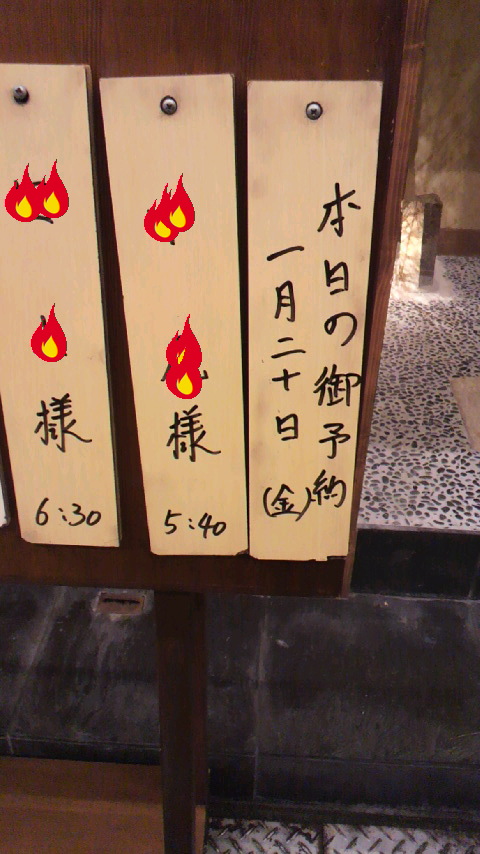 本日の御予約
一月二十日
(金)
様
5:40
様
6:30